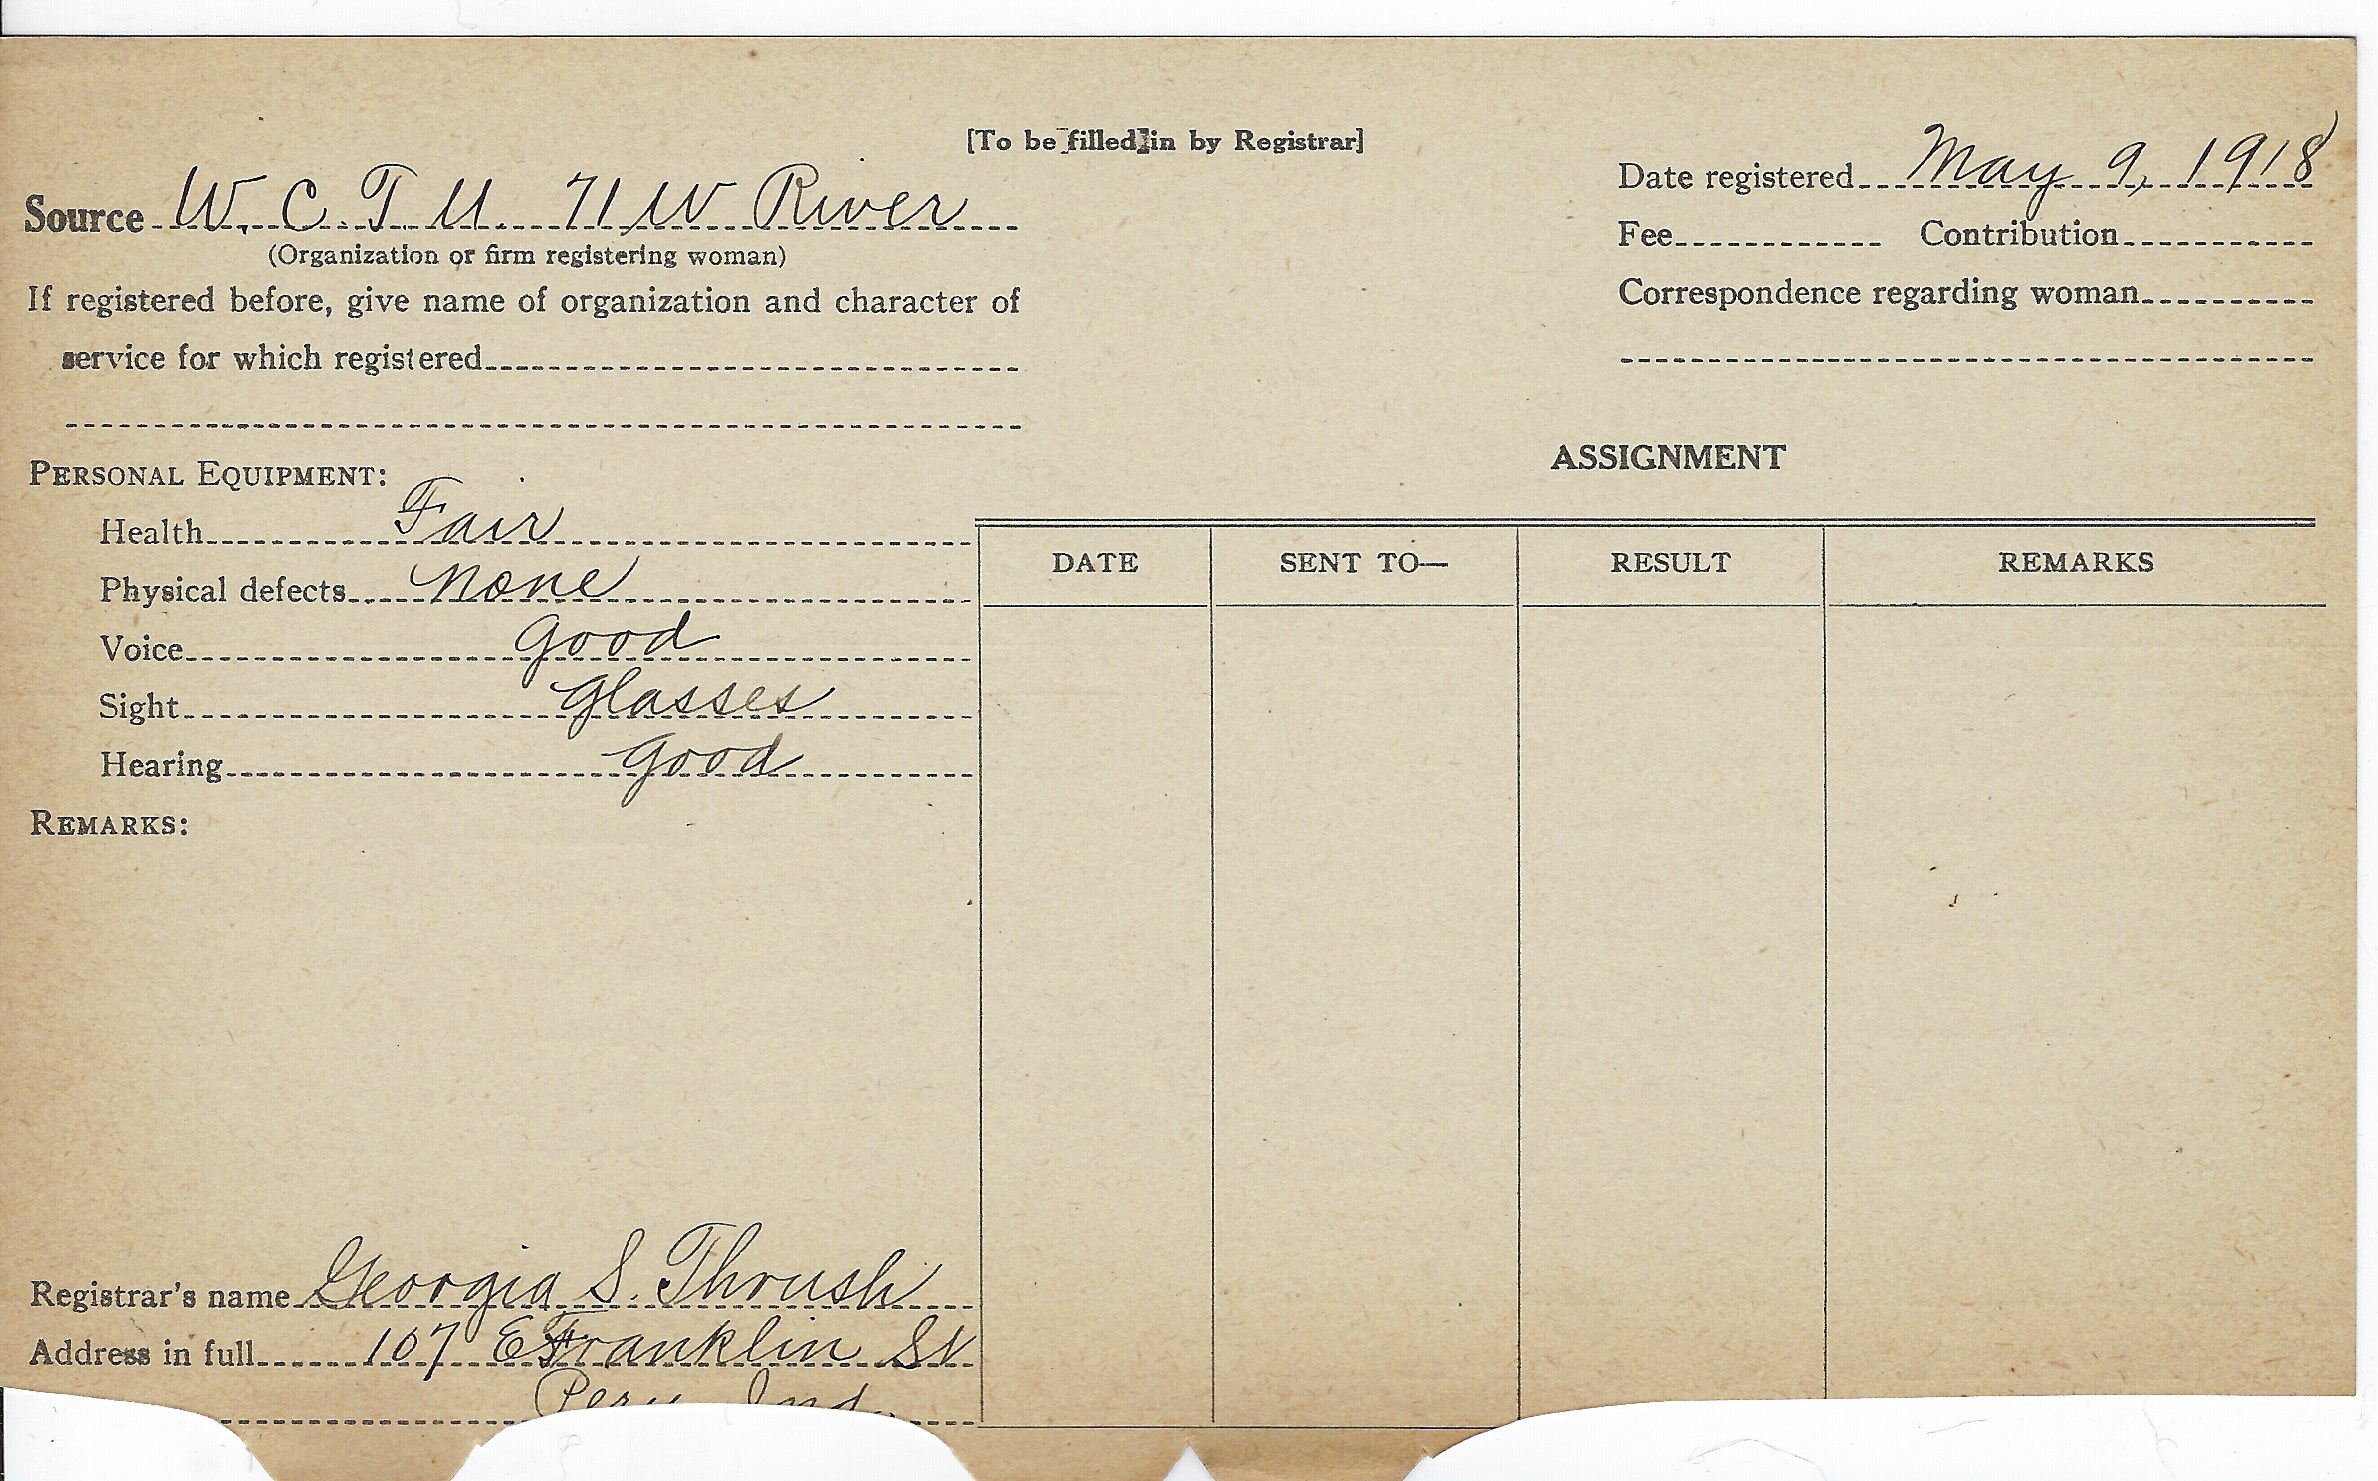 [To be filled in by Registrar]
Source W. C. T. U. 71 W River
(Organization or firm registering woman)
If registered before, give name of organization and character of
service for which registered
Date registered May 9, 1918
Fee Contribution
Correspondence regarding woman
PERSONAL EQUIPMENT:
Health Fair
Physical defects None
Voice Good
Sight Glasses
Hearing Good
REMARKS:
ASSIGNMENT
DATE SENT TO— RESULT REMARKS
Registrar's name Georgia S. Thrush
Address in full 107 E Franklin St
Peru Ind.